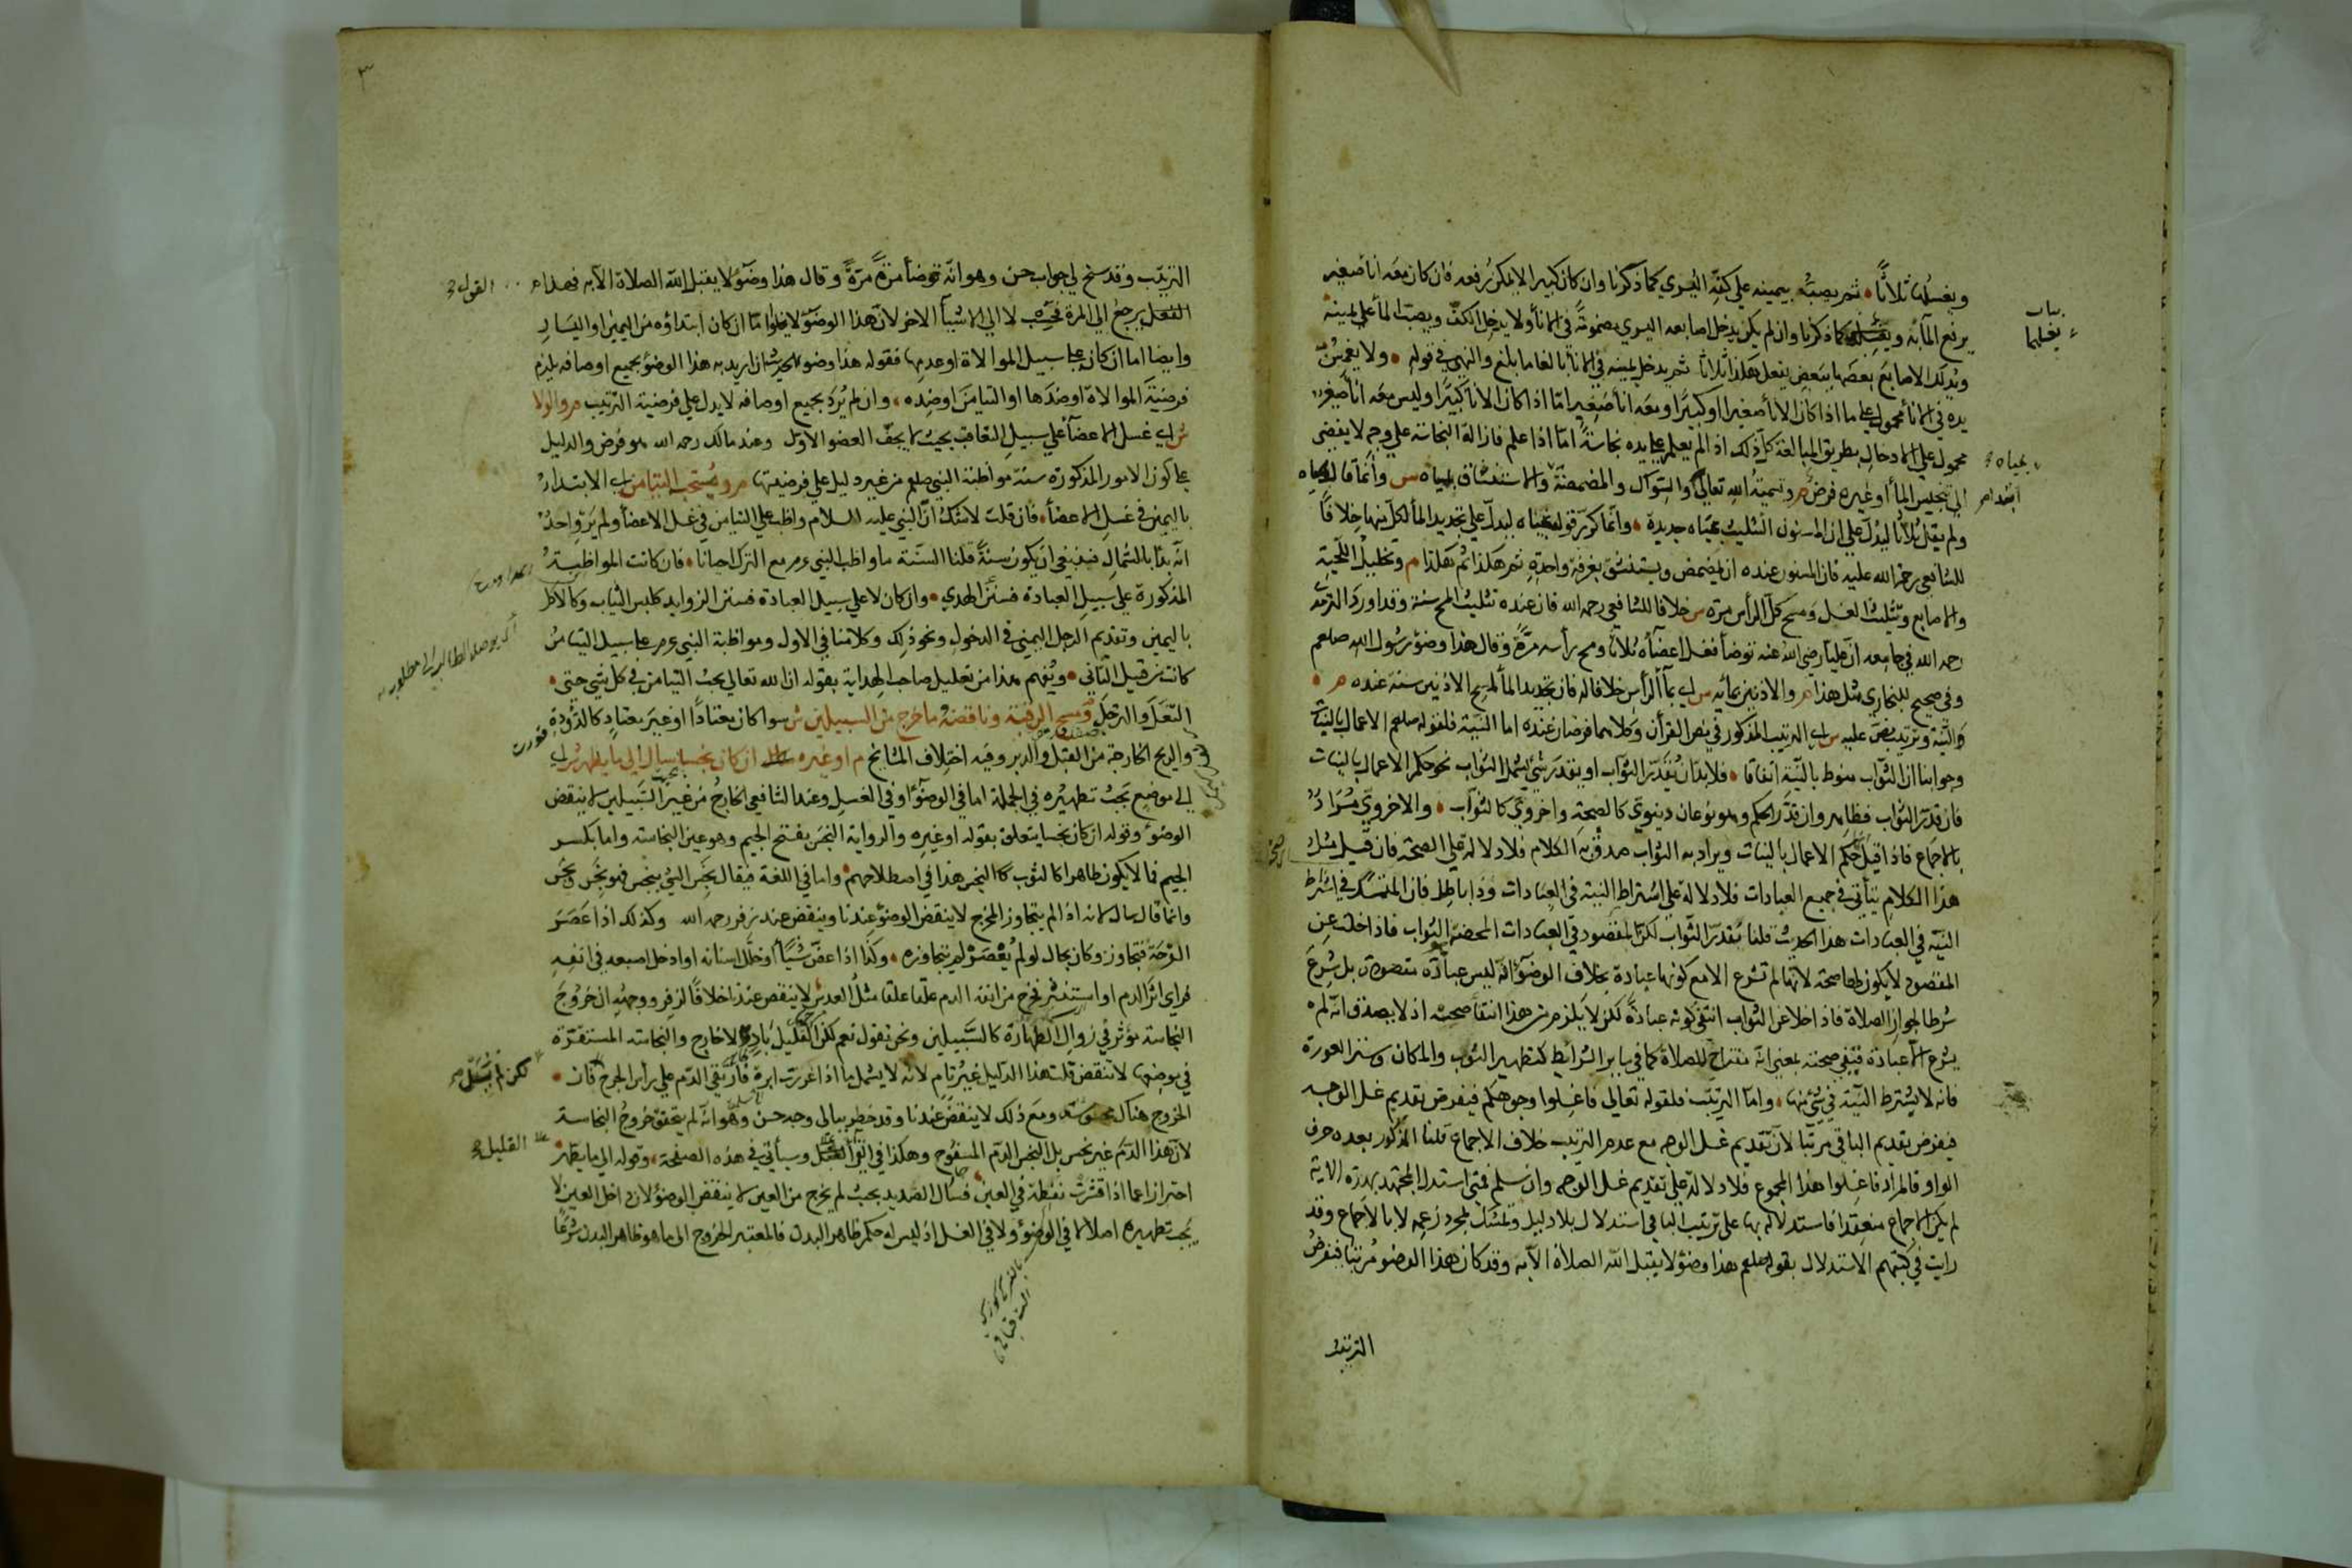 ويغسلها ثلاثًا ثم يصبّه بيمينه على كفّه اليسرى كما ذكرنا وان كان كبيرا لا يمكن رفعه فان كان معه اناء صغير
يرفع الماء به ويغسلهما كما ذكرنا وان لم يكن يدخل اصابعه اليسرى مضمومةً في الاناء ولا يدخل الكفّ ويصبّ الماء على يمينه
ويدلك الاصابع بعضها ببعض يفعل هكذا ثلاثا ثم يدخل يمينه في الاناء بالغا ما بلغ والنهي في قوله ولا يغمسنّ
يده في الاناء محمول على ما اذا كان الاناء صغيرا او كبيرًا ومعه اناء صغير امّا اذا كان الاناء كبيرًا وليس معه اناء صغير
محمول على الادخال بطريق المبالغة كلّ ذلك اذا لم يعلم على يده نجاسةً امّا اذا علم فازالة النجاسة على وجه لا يفضي
الى تنجيس الماء او غيره فرض م وتسمية الله تعالى والسواك والمضمضة والاستنشاق بمياه س وانما قال بمياه
ولم يقل ثلاثًا ليدل على ان المسنون التثليث بمياه جديدة وانّما كرّر قوله بمياه ليدلّ على تجديد الماء لكل منهما خلافًا
للشافعي رحمة الله عليه فان المسنون عنده ان يمضمض ويستنشق بغرفة واحدة ثم هكذا ثم هكذا م وتخليل اللحية
والاصابع وتثليث الغسل ومسح كلّ الرأس مرّة س خلافا للشافعي رحمه الله فان عنده تثليث المسح سنة وقد اورد الترمذي
رحمه الله في جامعه ان عليّا رضي الله عنه توضأ فغسل اعضاءه ثلاثًا ومسح رأسه مرّة وقال هذا وضوء رسول الله صلعم
وفي صحيح البخاري مثل هذا م والاذنين بمائه س اي بماء الرأس خلافا له فان تجديد الماء لمسح الاذنين سنة عنده م
والنيّة وترتيب نصّ عليه س اي الترتيب المذكور في نص القرآن وكلاهما فرضان عنده اما النيّة فلقوله صلعم الاعمال بالنيات
وجوابنا ان الثواب منوط بالنيّة اتفاقا فلا بدّ ان يُقدّر الثواب او يقدر شيء يشمل الثواب نحو حكم الاعمال بالنيات
فان قدّر الثواب فظاهر وان قدّر الحكم وهو نوعان دنيوي كالصحة واخروي كالثواب والاخروي مراد
بالاجماع فاذا قيل حكم الاعمال بالنيات ويراد به الثواب صدق به الكلام فلا دلالة على الصحة فان قيل مثل
هذا الكلام يتأتى في جميع العبادات فلا دلالة على اشتراط النية في العبادات وذا باطل فان المتمسك في اشتراط
النيّة في العبادات هذا الحديث قلنا نُقدّر الثواب لكن المقصود في العبادات المحضة الثواب فاذا خلت عن
المقصود لا يكون لها صحة لانها لم تشرع الا مع كونها عبادة بخلاف الوضوء اذ ليس عبادة مقصودة بل شرع
شرطا لجواز الصلاة فاذا خلا عن الثواب انتفى كونه عبادةً لكن لا يلزم من هذا انتفاء صحته اذ لا يصدق انه لم
يشرع الا عبادة فبقي صحته بمعنى انه مفتاح للصلاة كما في سائر الشرائط كتطهير الثوب والمكان وستر العورة
فانه لا يشترط النيّة في شيء منها وامّا الترتيب فلقوله تعالى فاغسلوا وجوهكم فيفرض تقديم غسل الوجه
فيفرض تقديم الباقي مرتّبا لانّ تقديم غسل الوجه مع عدم الترتيب خلاف الاجماع قلنا المذكور بعده حرف
الواو فالمراد فاغسلوا هذا المجموع فلا دلالة على تقديم غسل الوجه وان سلم فمتى استدل المجتهد بهذه الاية
لم يكن الاجماع منعقدا فاستدلاله بها على ترتيب الباقي استدلال بلا دليل وتمسّك بمجرد زعمه لا بالاجماع وقد
رايت في كتبهم الاستدلال بقوله صلعم هذا وضوء لا يقبل الله الصلاة الا به وقد كان هذا الوضوء مرتبا فيفرض
الترتيب
يغسلهما
بمياه
ابتداء
الترتيب وقد سنح لي جواب حسن وهو انّه توضأ مرّةً مرّةً وقال هذا وضوء لا يقبل الله الصلاة الا به فهذا
الفعل يرجع الى المرة فحسب لا الى الاشياء الاخر لان هذا الوضوء لا يخلو امّا ان كان ابتداؤه من اليمين او اليسار
وايضا اما ان كان على سبيل الموالاة او عدمها فقوله هذا وضوء الحديث ان اريد به هذا الوضوء بجميع اوصافه يلزم
فرضيّة الموالاة او ضدّها او التيامن او ضده وان لم يُرَد بجميع اوصافه لا يدل على فرضية الترتيب م والولاء
ش اي غسل الاعضاء على سبيل التعاقب بحيث لا يجفّ العضو الاوّل وعند مالك رحمه الله هو فرض والدليل
على كون الامور المذكورة سنّة مواظبة النبي صلعم من غير دليل على فرضيتها م ويُستحب التيامن اي الابتداء
باليمين في غسل الاعضاء فان قلت لا شك انّ النبي عليه السلام واظب على التيامن في غسل الاعضاء ولم يَرو احدٌ
انّه بدأ بالشمال فينبغي ان يكون سنةً قلنا السنّة ما واظب النبي عم مع الترك احيانا فان كانت المواظبة
المذكورة على سبيل العبادة فسنن الهدي وان كان لا على سبيل العبادة فسنن الزوايد كلبس الثياب والاكل
باليمين وتقديم الرجل اليمنى في الدخول ونحو ذلك وكلامنا في الاول ومواظبة النبي عم على سبيل التيامن
كانت من قبيل الثاني ويُفهم هذا من تعليل صاحب الهداية بقوله ان الله تعالى يحبّ التيامن في كل شيء حتى
التنعّل والترجّل ومسح الرقبة وناقضه ما خرج من السبيلين ش سواء كان معتادًا او غير معتادٍ كالدودة
والريح الخارجة من القبل والدبر وفيه اختلاف المشايخ م او غيره ان كان نجسا سال الى ما يطهر ش اي
الى موضع يجب تطهيره في الجملة اما في الوضوء او في الغسل وعند الشافعي الخارج من غير السبيلين لا ينقض
الوضوء وقوله ان كان نجسا يتعلق بقوله او غيره والرواية النجَس بفتح الجيم وهو عين النجاسة واما بكسر
الجيم فما لا يكون طاهرا كالثوب النجس هذا في اصطلاحهم واما في اللغة فيقال نجِس الشيء ينجس فهو نجِس ونجَس
وانما قال سال لانه اذا لم يتجاوز المخرج لا ينقض الوضوء عندنا وينقض عند زفر رحمه الله وكذلك اذا عَصَرَ
القرحة فتجاوز وكان بحال لو لم يُعصَر لم يتجاوز وكذا اذا عضّ شيئًا او خلّل اسنانه او ادخل اصبعه في انفه
فراى اثر الدم او استنثر فخرج من انفه الدم علقا علقا مثل العدس لا ينقض عندنا خلافًا لزفر ووجهه ان خروج
النجاسة مؤثر في زوال الطهارة كالسبيلين ونحن نقول نعم لكن القليل بادٍ لا خارج والنجاسة المستقرّة
في موضعها لا تنقض قلت هذا الدليل غير تام لانه لا يشمل ما اذا غرزت ابرة فارتقى الدم على رأس الجرح فان
الخروج هناك ومع ذلك لا ينقض عندنا وقد خطر ببالي وجه حسن وهو انه لم يتحقق خروج النجاسة
لان هذا الدم غير نجس بل النجس الدم المسفوح وهكذا في القيء القليل وسيأتي في هذه الصفحة وقوله الى ما يطهر
احترازا عما اذا قشرت نفطة في العين فسال الصديد بحيث لم يخرج من العين لا ينقض الوضوء لان داخل العين لا
يجب تطهيره اصلا لا في الوضوء ولا في الغسل اذ ليس له حكم ظاهر البدن فالمعتبر الخروج الى ما هو ظاهر البدن شرعًا
القول
لكن لم يسل
القليل